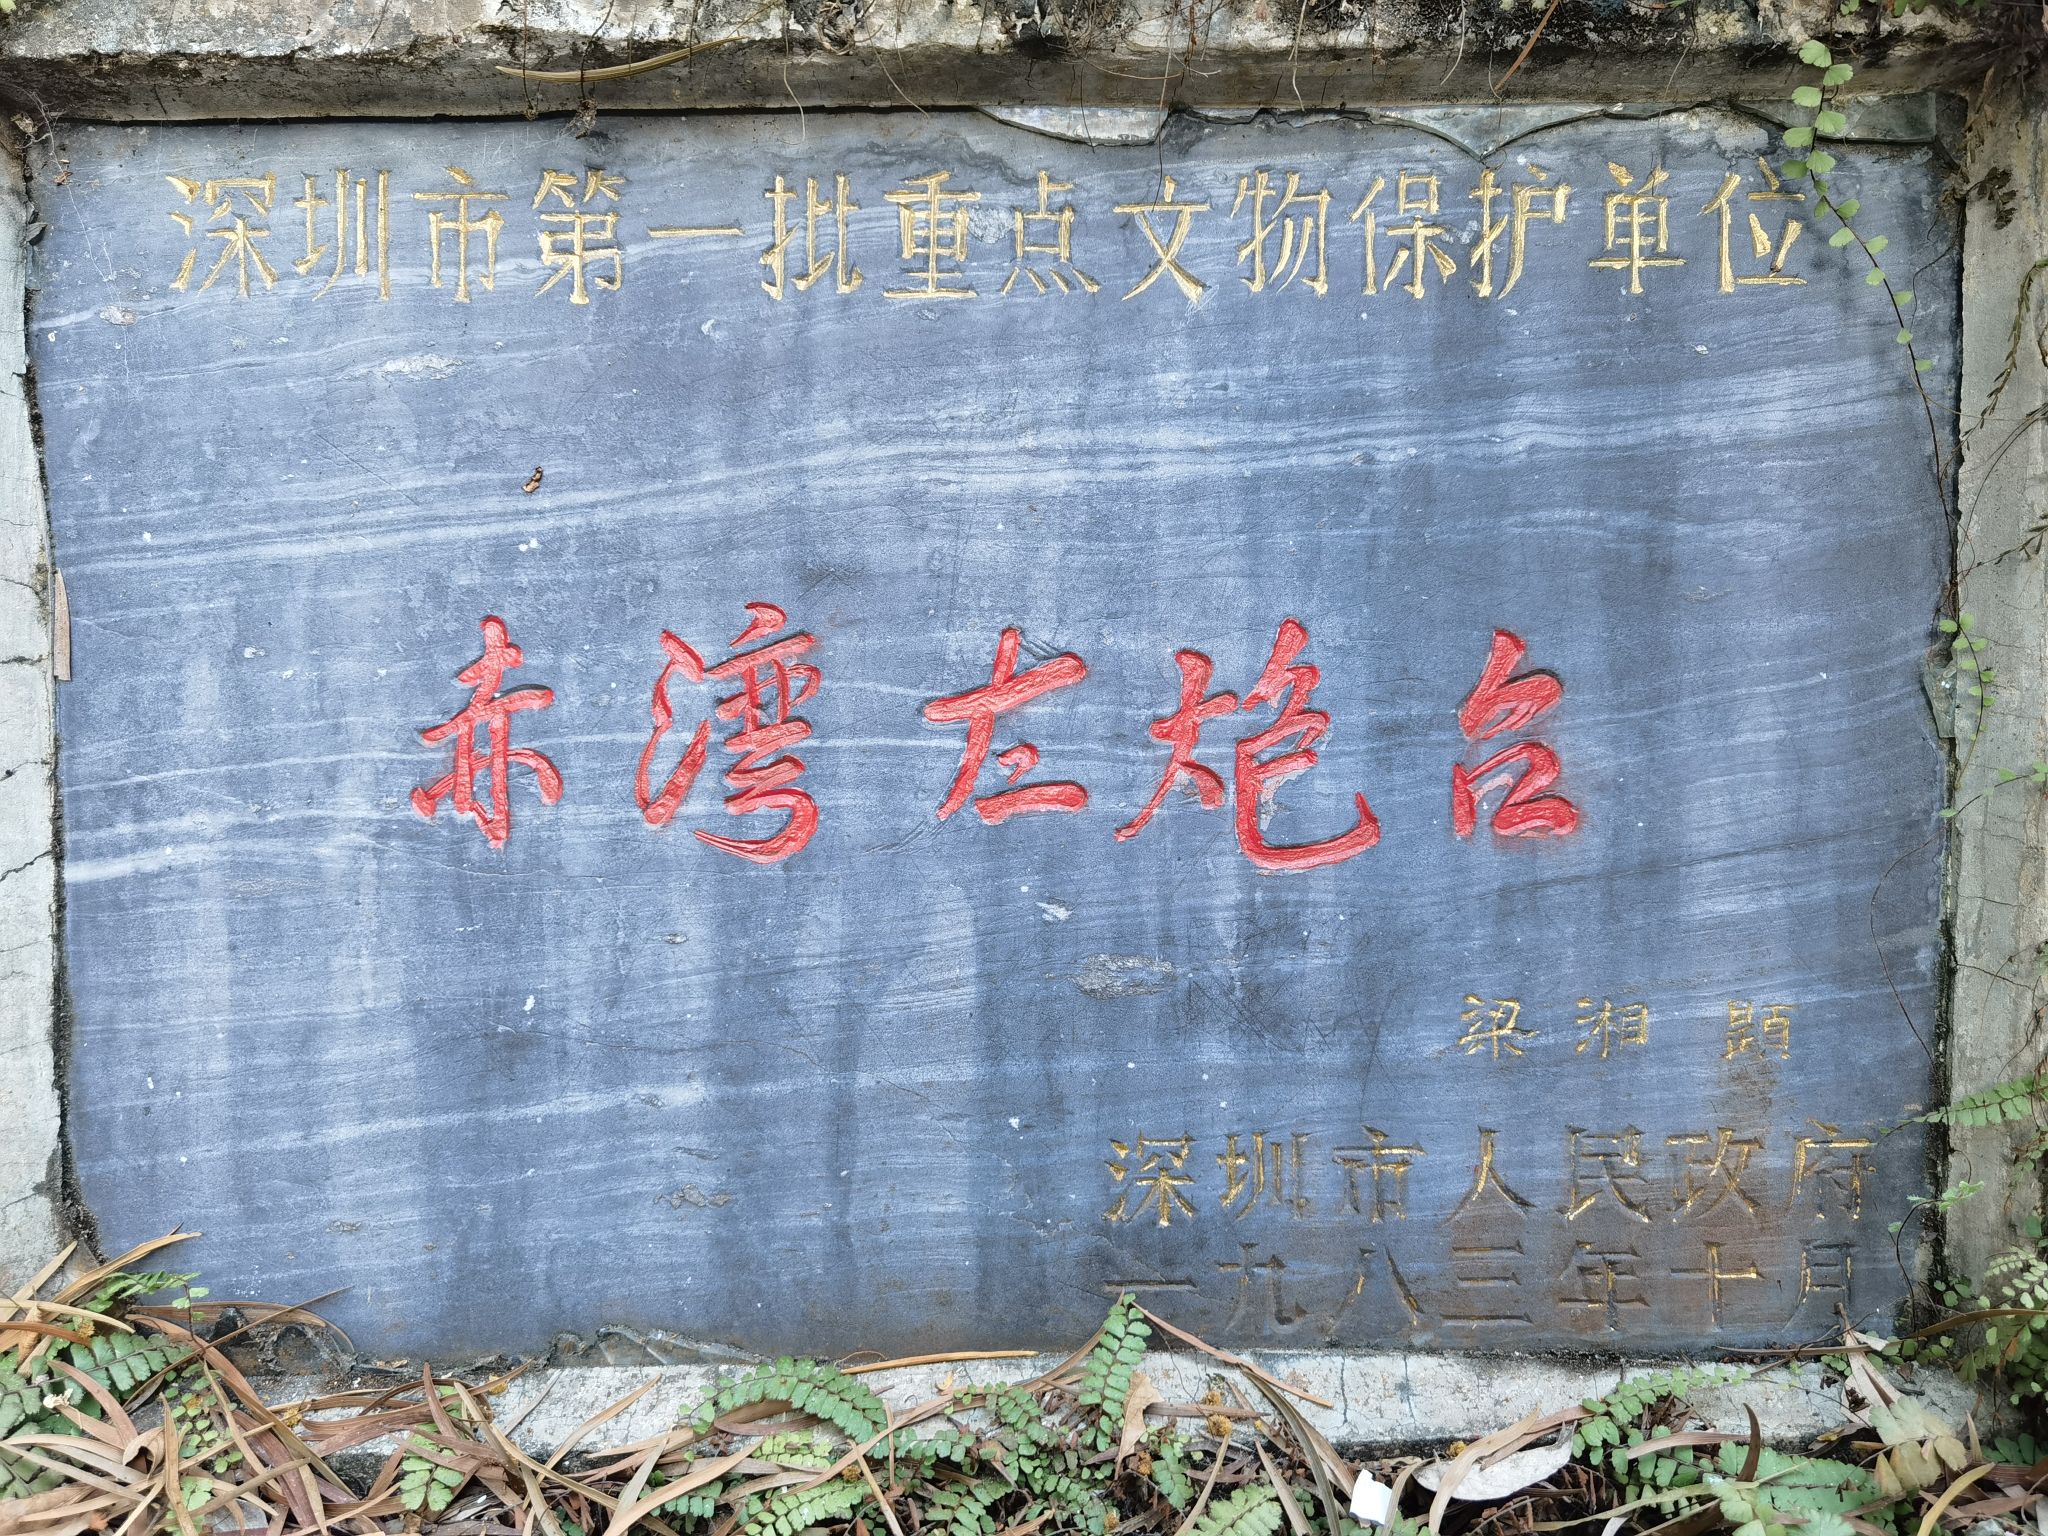 深圳市第一批重点文物保护单位
赤湾左炮台
梁湘 题
深圳市人民政府
一九八三年十月